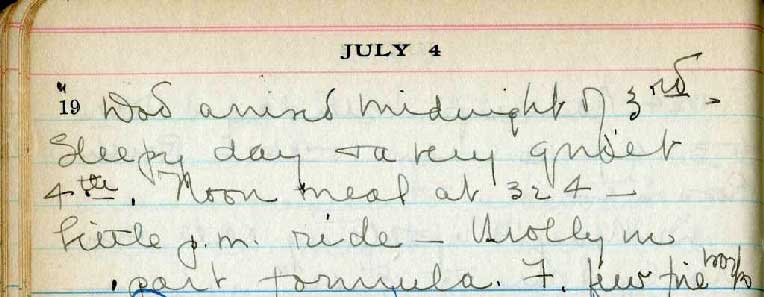 JULY 4
19 Dod arrived midnight of 3rd.
Sleepy day + a very quiet
4th. Noon meal at 324 –
Little p.m. ride – Molly
part formula. F. few fire